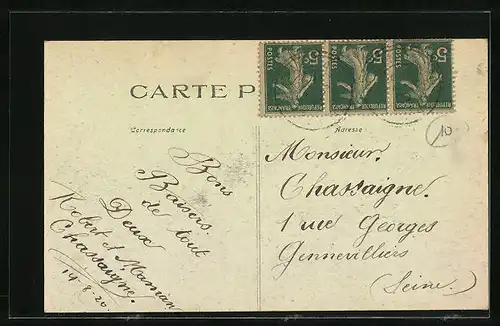 CARTE P
Correspondance
Adresse
5c 5c 5c
POSTES POSTES POSTES
REPUBLIQUE FRANÇAISE REPUBLIQUE FRANÇAISE REPUBLIQUE FRANÇAISE
10
Bons
Baisers
de tout
Deux
Robert et Maman
Chassaigne.
14-8-20
Monsieur.
Chassaigne.
1 rue Georges
Gennevilliers
(Seine.)